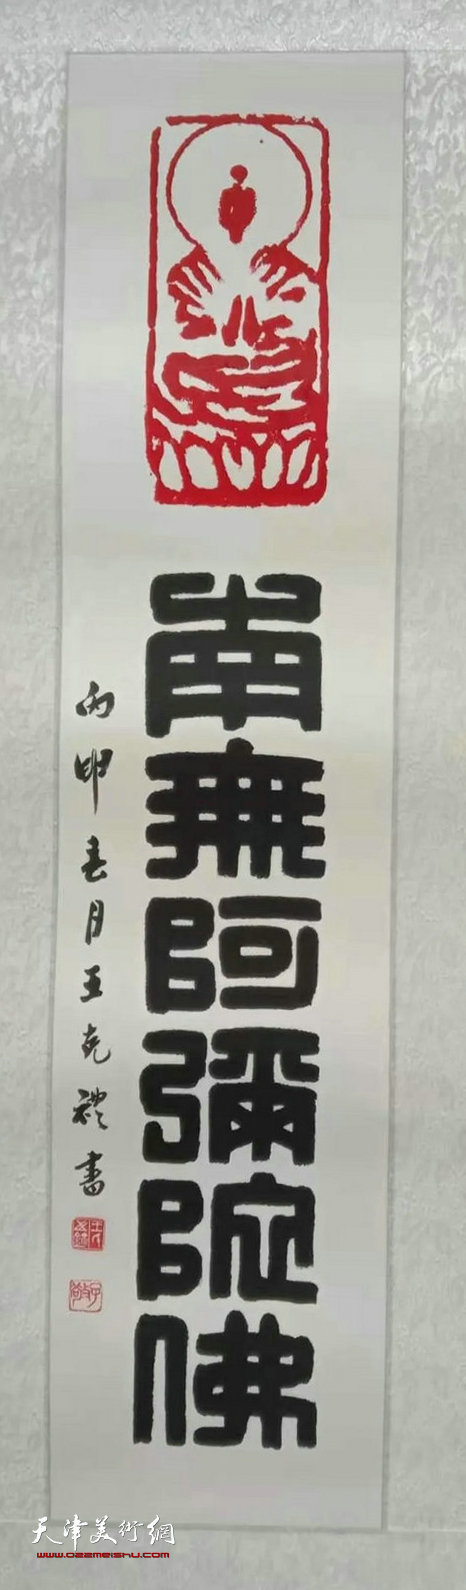 南無阿彌陀佛
丙申春月王克禮書
天津美術網
www.022meishu.com